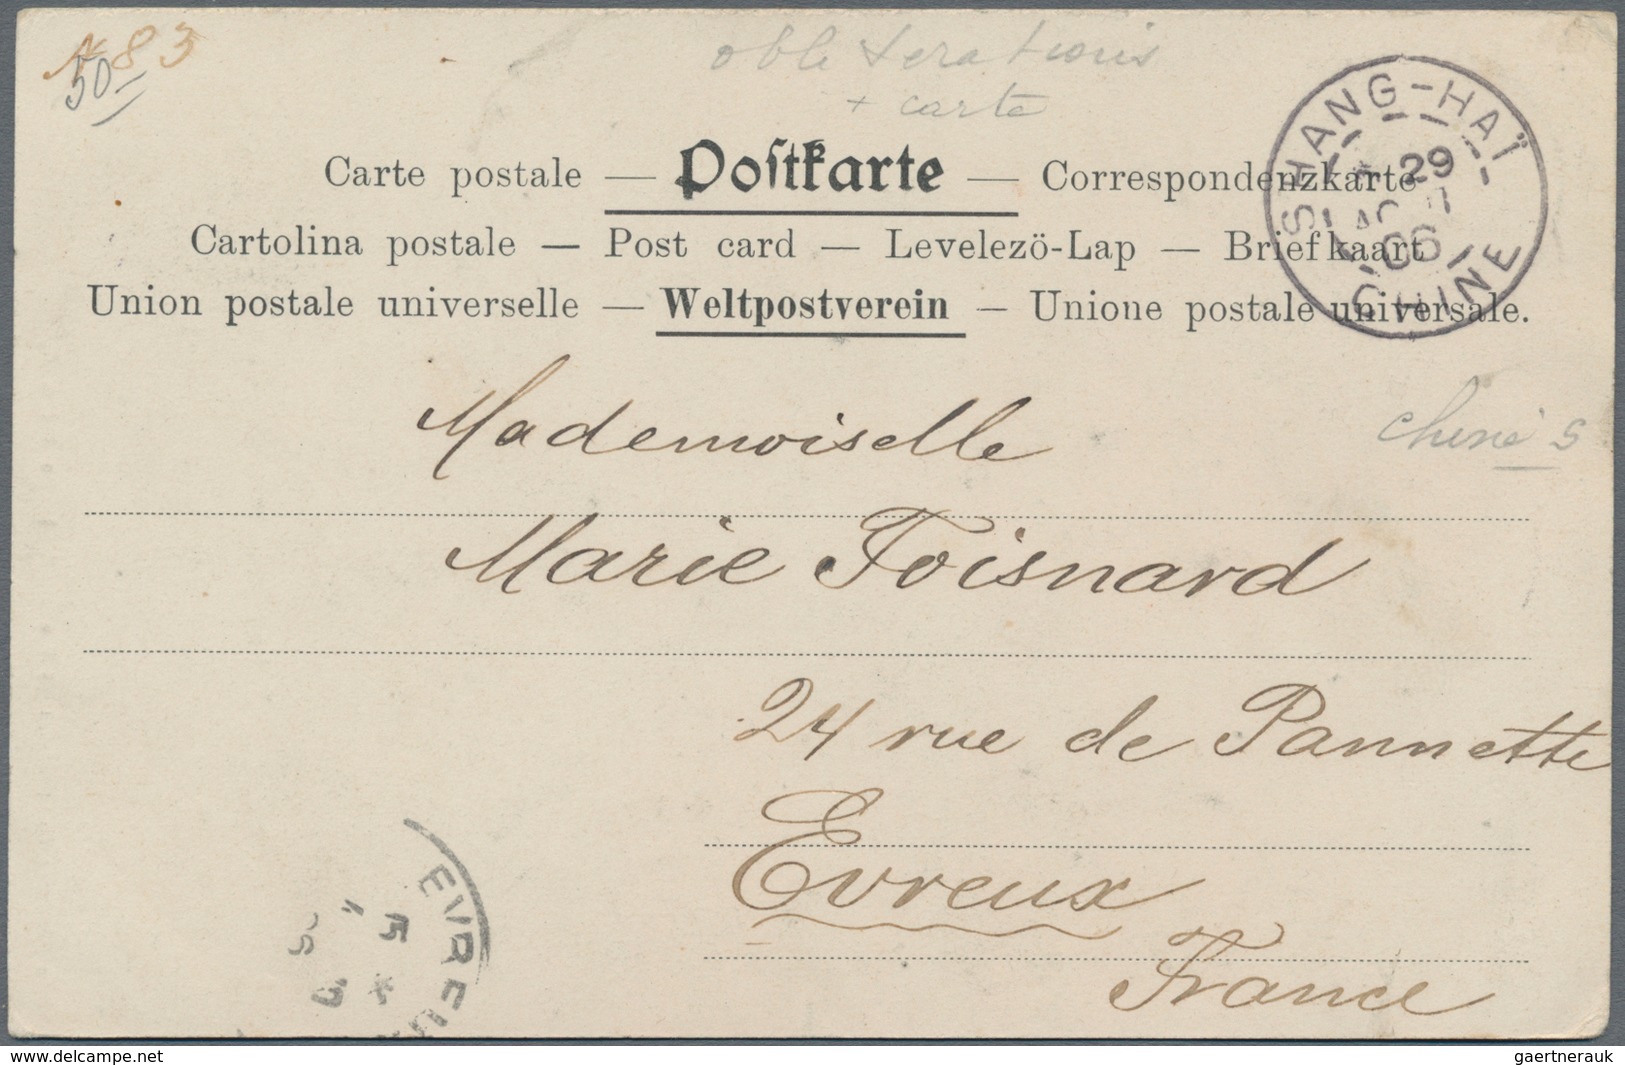 N 83
50
obliterations
+ carte
SHANG-HAÏ
29
06
CHINE
Carte postale — Poſtkarte — Correspondenzkarte
Cartolina postale — Post card — Levelezö-Lap — Briefkaart
Union postale universelle — Weltpostverein — Unione postale universale.
Mademoiselle
Marie Foisnard
24 rue de Pannette
Evreux
France
EVREU
5
gaertnerauk @ www.delcampe.net